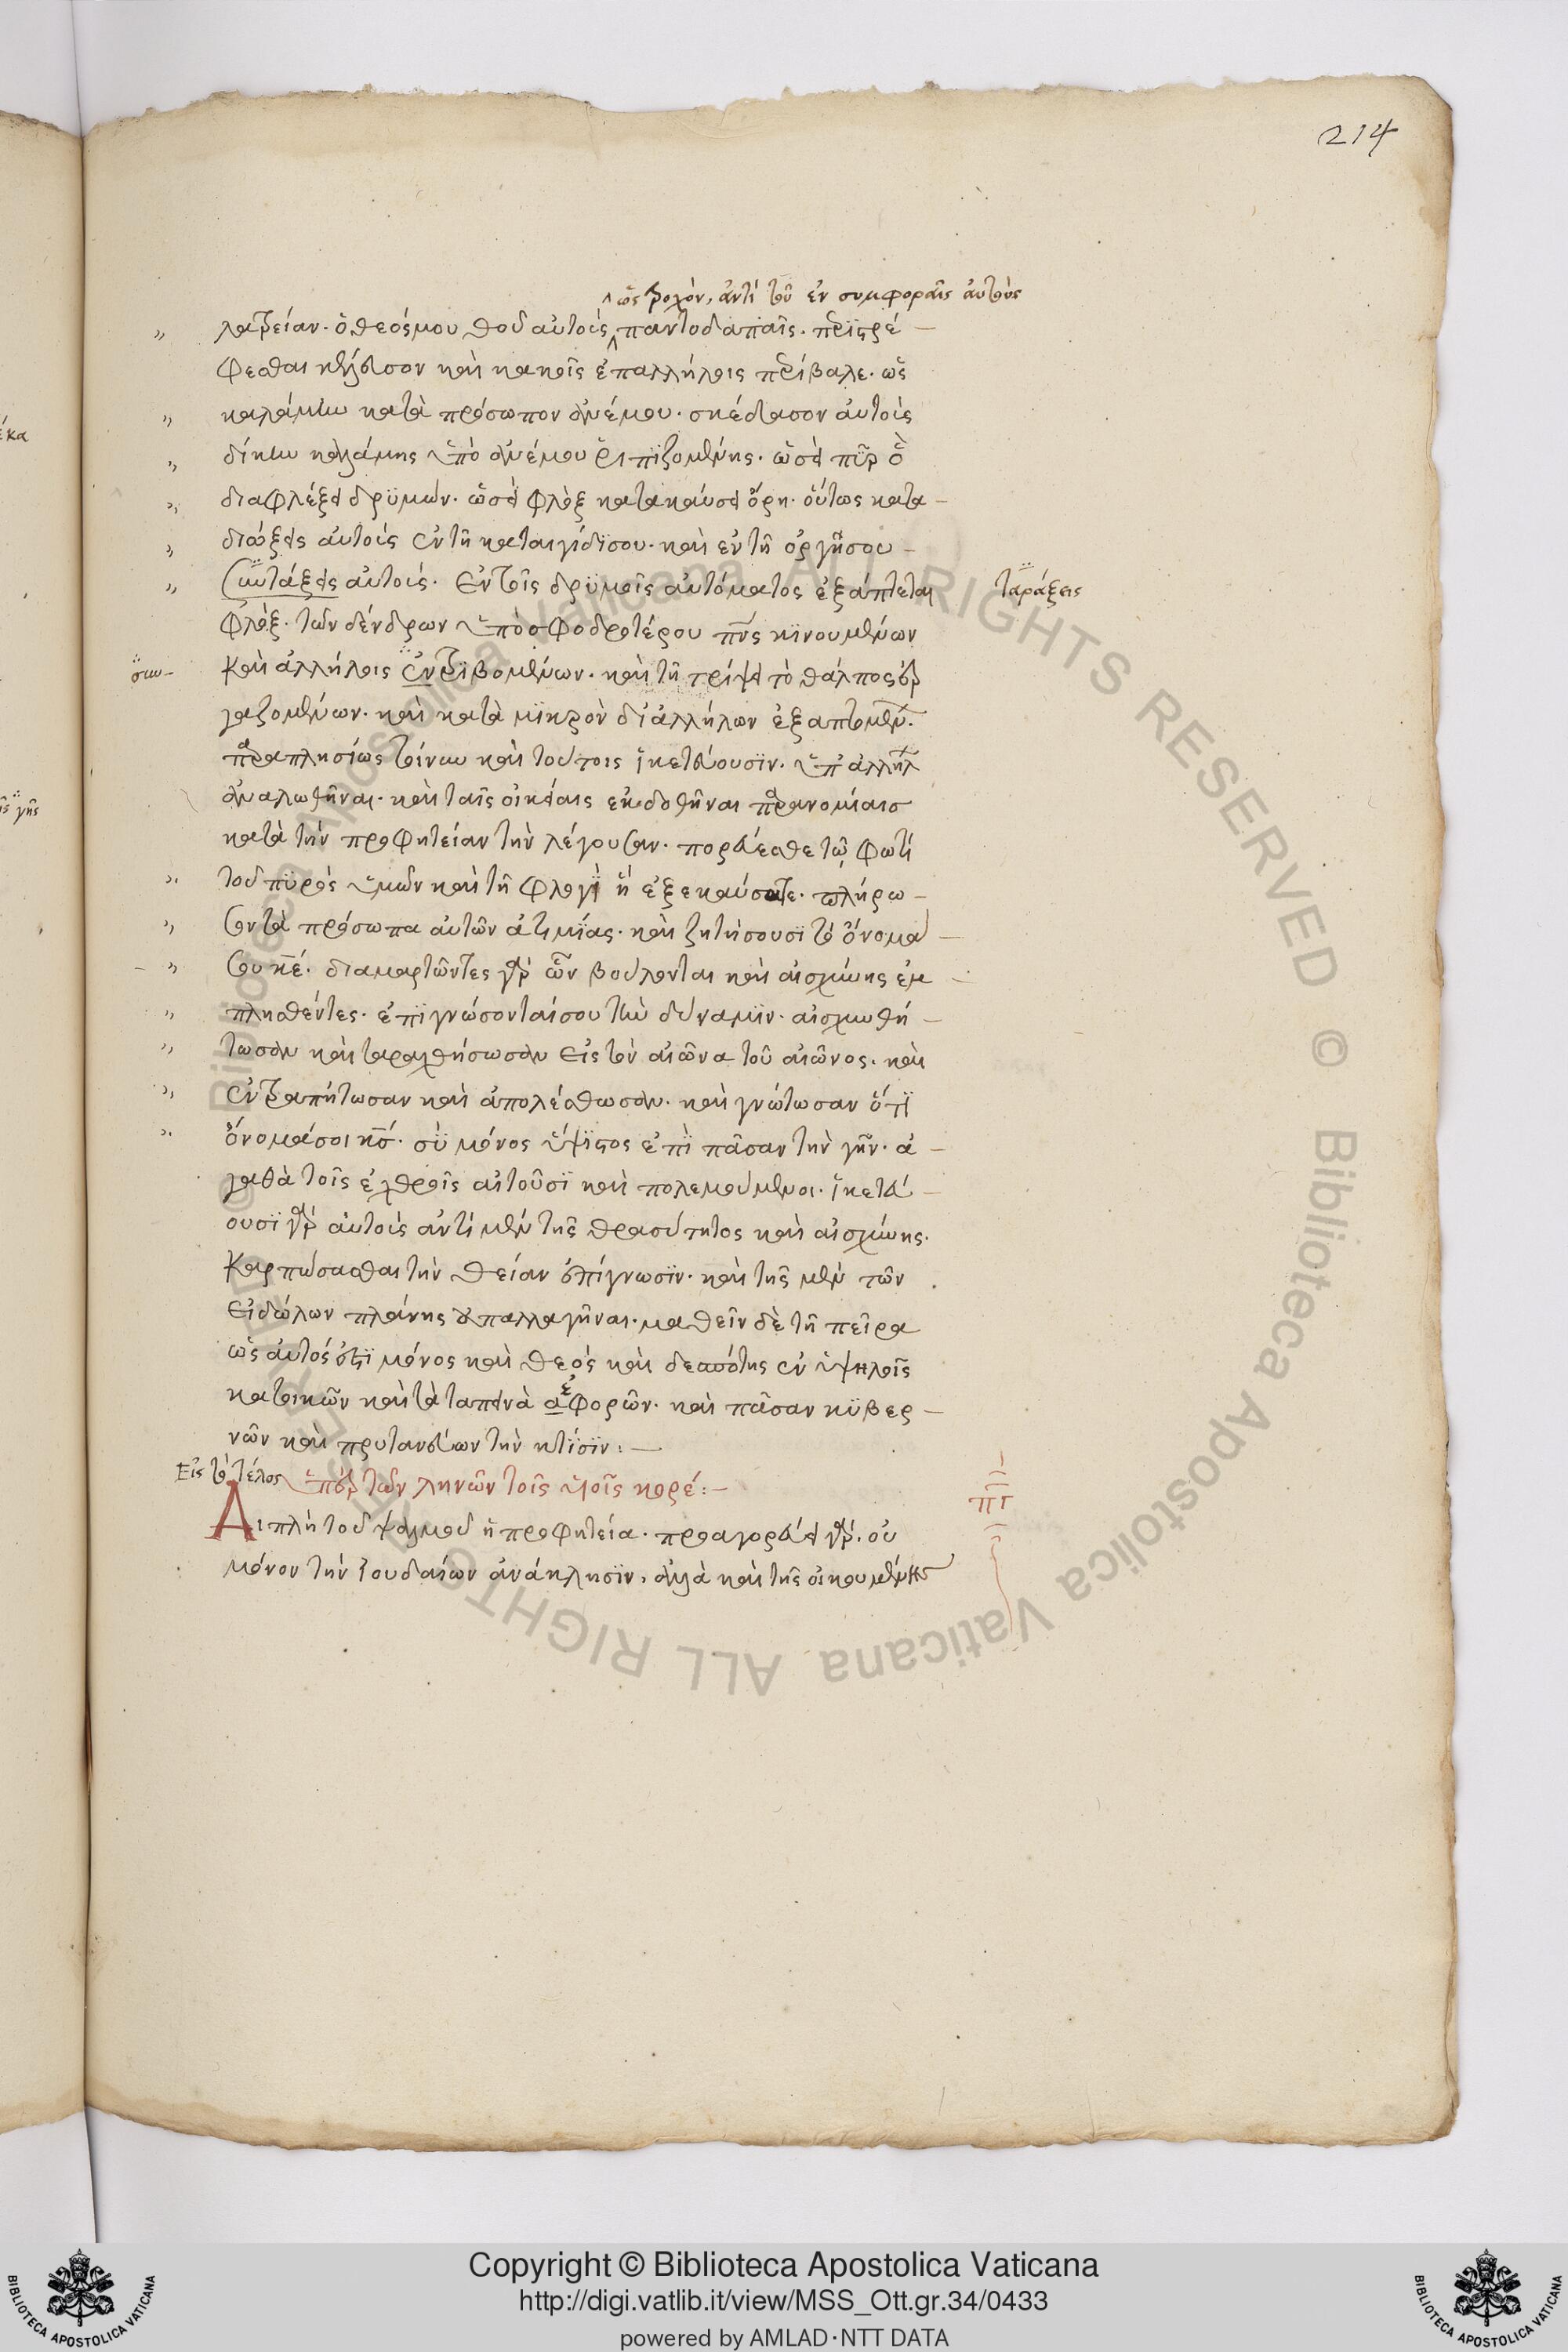 214
ὡς τροχὸν, ἀντὶ τοῦ ἐν συμφοραῖς αὐτοὺς
λατρείαν· ὁ θεός μου θοῦ αὐτοὺς παντοδαπαῖς· περιστρέ
φεσθαι κέλευσον καὶ κακοῖς ἐπαλλήλοις περίβαλε· ὡς
καλάμην κατὰ πρόσωπον ἀνέμου· σκέδασον αὐτοὺς
δίκην καλάμης ὑπὸ ἀνέμου ῥιπιζομένης· ὡσεὶ πῦρ ὃ
διαφλέξει δρυμόν· ὡσεὶ φλὸξ κατακαύσει ὄρη· οὕτως κατα
διώξεις αὐτοὺς ἐν τῇ καταιγίδι σου· καὶ ἐν τῇ ὀργῇ σου
συντάξεις αὐτούς· ἐν τοῖς δρυμοῖς αὐτόματος ἐξάπτεται
ταράξεις
φλόξ· τῶν δένδρων ὑπὸ σφοδροτέρου πν̅ς κινουμένων
συν
καὶ ἀλλήλοις ἐντριβομένων· καὶ τῇ τρίψει τὸ θάλπος ἐρ
γαζομένων· καὶ κατὰ μικρὸν δι' ἀλλήλων ἐξαπτομέν
παραπλησίως τοίνυν καὶ τούτοις ἱκετεύουσιν· ὑπ' ἀλλήλ
ἀναλωθῆναι· καὶ ταῖς οἰκείαις ἐκδοθῆναι παρανομίαις
κατὰ τὴν προφητείαν τὴν λέγουσαν· πορεύεσθε τῷ φωτὶ
τοῦ πυρὸς ὑμῶν καὶ τῇ φλογὶ ᾗ ἐξεκαύσατε· πλήρω
σον τὰ πρόσωπα αὐτῶν ἀτιμίας· καὶ ζητήσουσι τὸ ὄνομά
σου κ̅ε̅· διαμαρτῶντες γὰρ ὧν βούλονται καὶ αἰσχύνης ἐμ
πλησθέντες· ἐπιγνώσονταί σου τὴν δύναμιν· αἰσχυνθή
τωσαν καὶ ταραχθήσωσαν εἰς τὸν αἰῶνα τοῦ αἰῶνος· καὶ
ἐντραπήτωσαν καὶ ἀπολέσθωσαν· καὶ γνώτωσαν ὅτι
ὄνομά σοι κ̅ς̅· σὺ μόνος ὕψιστος ἐπὶ πᾶσαν τὴν γῆν· ἀ
γαθὰ τοῖς ἐχθροῖς αἰτοῦσι καὶ πολεμούμενοι· ἱκετεύ
ουσι γὰρ αὐτοὺς ἀντὶ μὲν τῆς θρασύτητος καὶ αἰσχύνης·
καρπώσασθαι τὴν θείαν ἐπίγνωσιν· καὶ τῆς μὲν τῶν
εἰδώλων πλάνης ἀπαλλαγῆναι· μαθεῖν δὲ τῇ πεῖρα
ὡς αὐτός ἐστι μόνος καὶ θεὸς καὶ δεσπότης ἐν ὑψηλοῖς
κατοικῶν καὶ τὰ ταπεινὰ ἀφορῶν· καὶ πᾶσαν κυβερ
νῶν καὶ πρυτανεύων τὴν κτίσιν:
Εἰς τὸ τέλος ὑπὲρ τῶν ληνῶν τοῖς υἱοῖς κορέ:
πγ
Διπλῆ τοῦ ψαλμοῦ ἡ προφητεία· προαγορεύει γὰρ· οὐ
μόνον τὴν Ἰουδαίων ἀνάκλησιν, ἀλλὰ καὶ τῆς οἰκουμένης
Copyright © Biblioteca Apostolica Vaticana
http://digi.vatlib.it/view/MSS_Ott.gr.34/0433
powered by AMLAD·NTT DATA